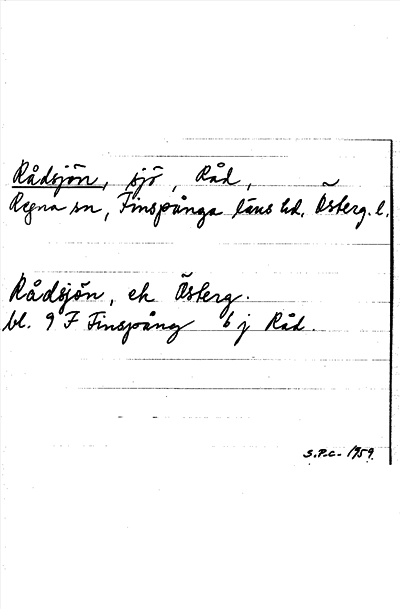 Rådsjön, sjö, Råd,
Regna sn, Finspånga läns hd. Österg. l.
Rådsjön, ek Österg.
bl. 9 F Finspång 6 j Råd.
S.P.C. 1959.